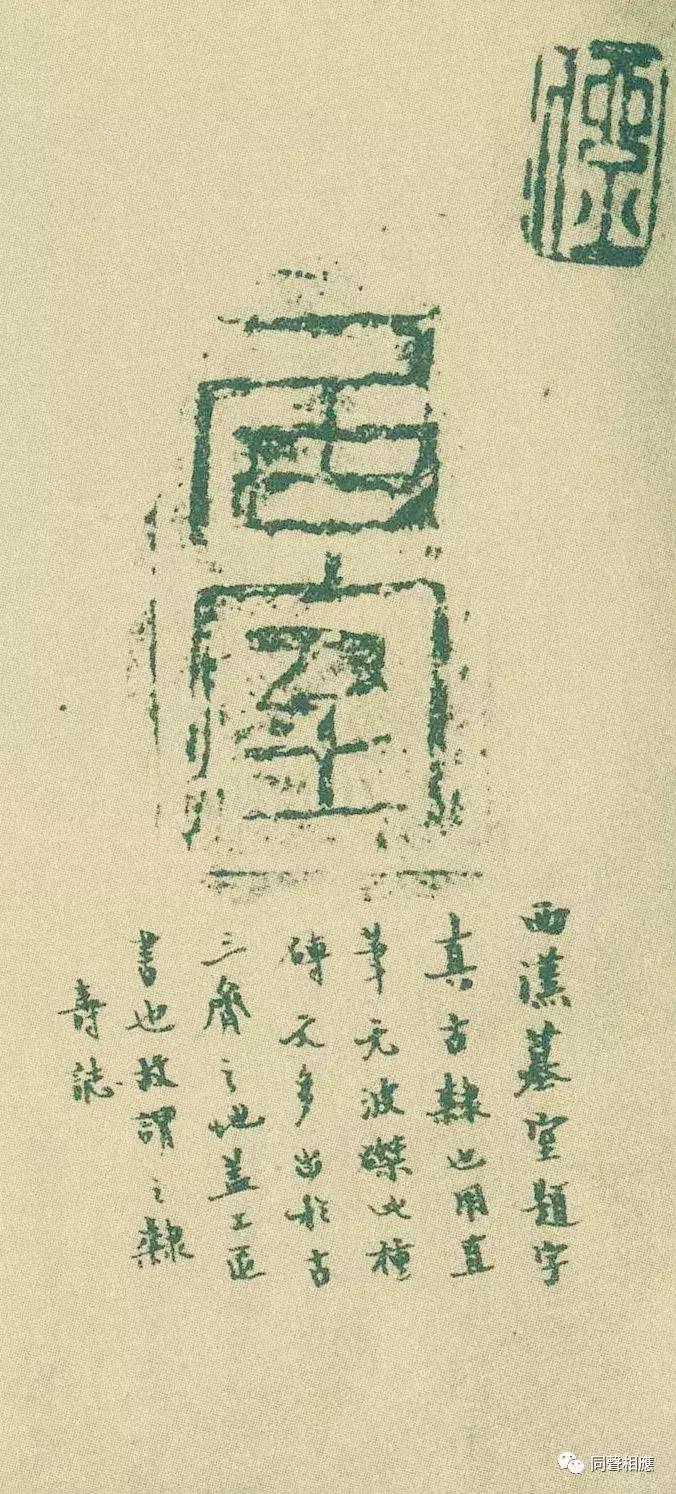 西室
西漢墓室題字
真古隸也用直
筆无波磔此種
磚文多出於古
三齊之地盖工匠
書也故謂之隸
壽誌
同聲相應